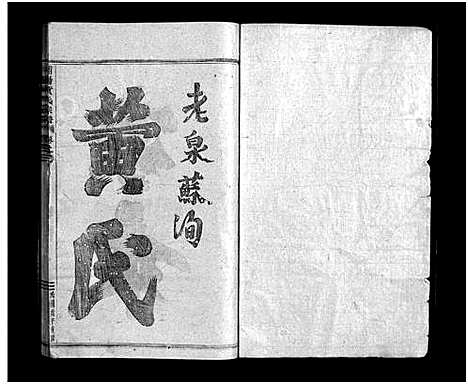 老泉蘇洵
黄氏